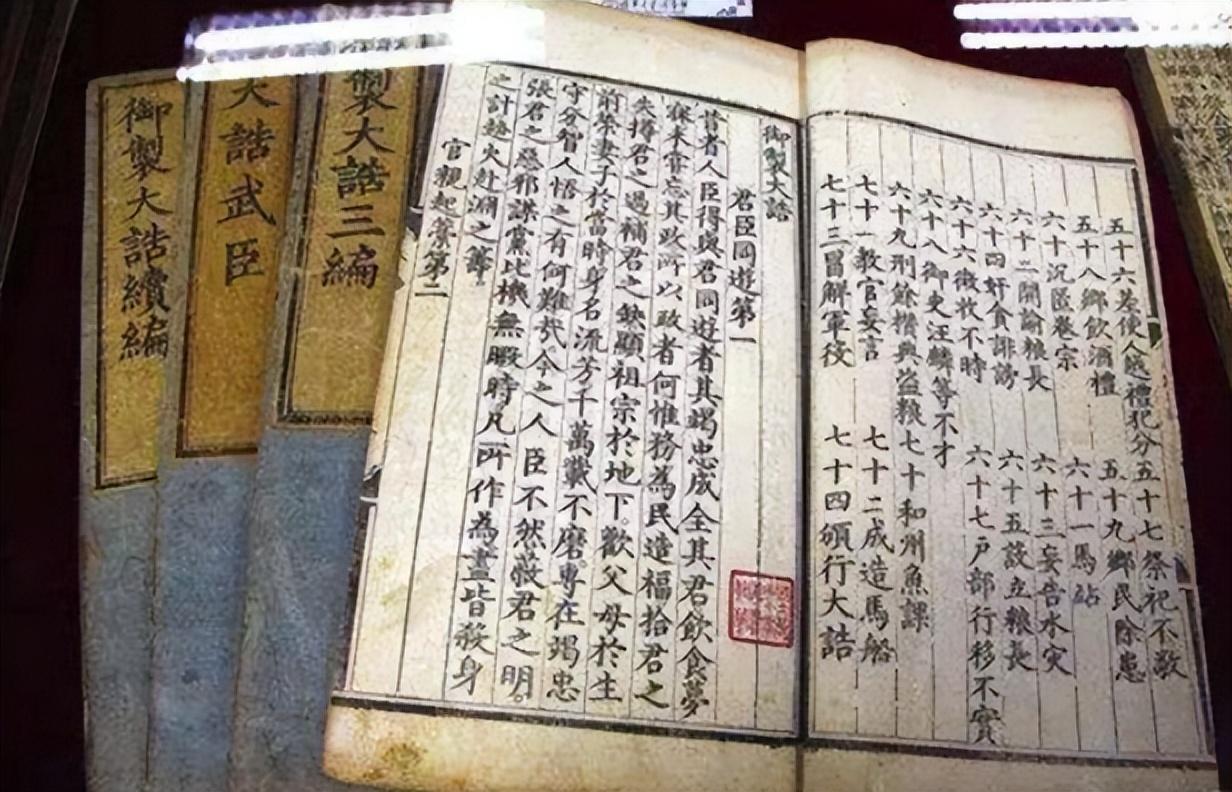 五十六差使人越禮犯分 五十七祭祀不敬
五十八鄉飲酒禮 五十九鄉民除患
六十沉匿卷宗 六十一馬站
六十二開諭粮長 六十三妄告水灾
六十四奸貪誹謗 六十五設立粮長
六十六徵收不時 六十七戶部行移不實
六十八御史汪麟等不才
六十九刑餘揩典盜粮 七十和州魚課
七十一教官妄言 七十二成造馬船
七十三冒解軍役 七十四頒行大誥
御製大誥
君臣同遊第一
昔者人臣得與君同遊者其竭忠成全其君飲食夢
寐未嘗忘其政所以政者何惟務為民造福拾君之
失撙君之過補君之缺顯祖宗於地下。歡父母於生
前榮妻子於當時身名流芳千萬載不磨。專在竭忠
守分智人悟之有何難哉。今之人臣不然蔽君之明。
張君之惡邪謀黨比機無暇時凡所作為盡皆殺身
之計趍火赴淵之籌
官親起藁第二
製大誥三編
大誥武臣
御製大誥續編